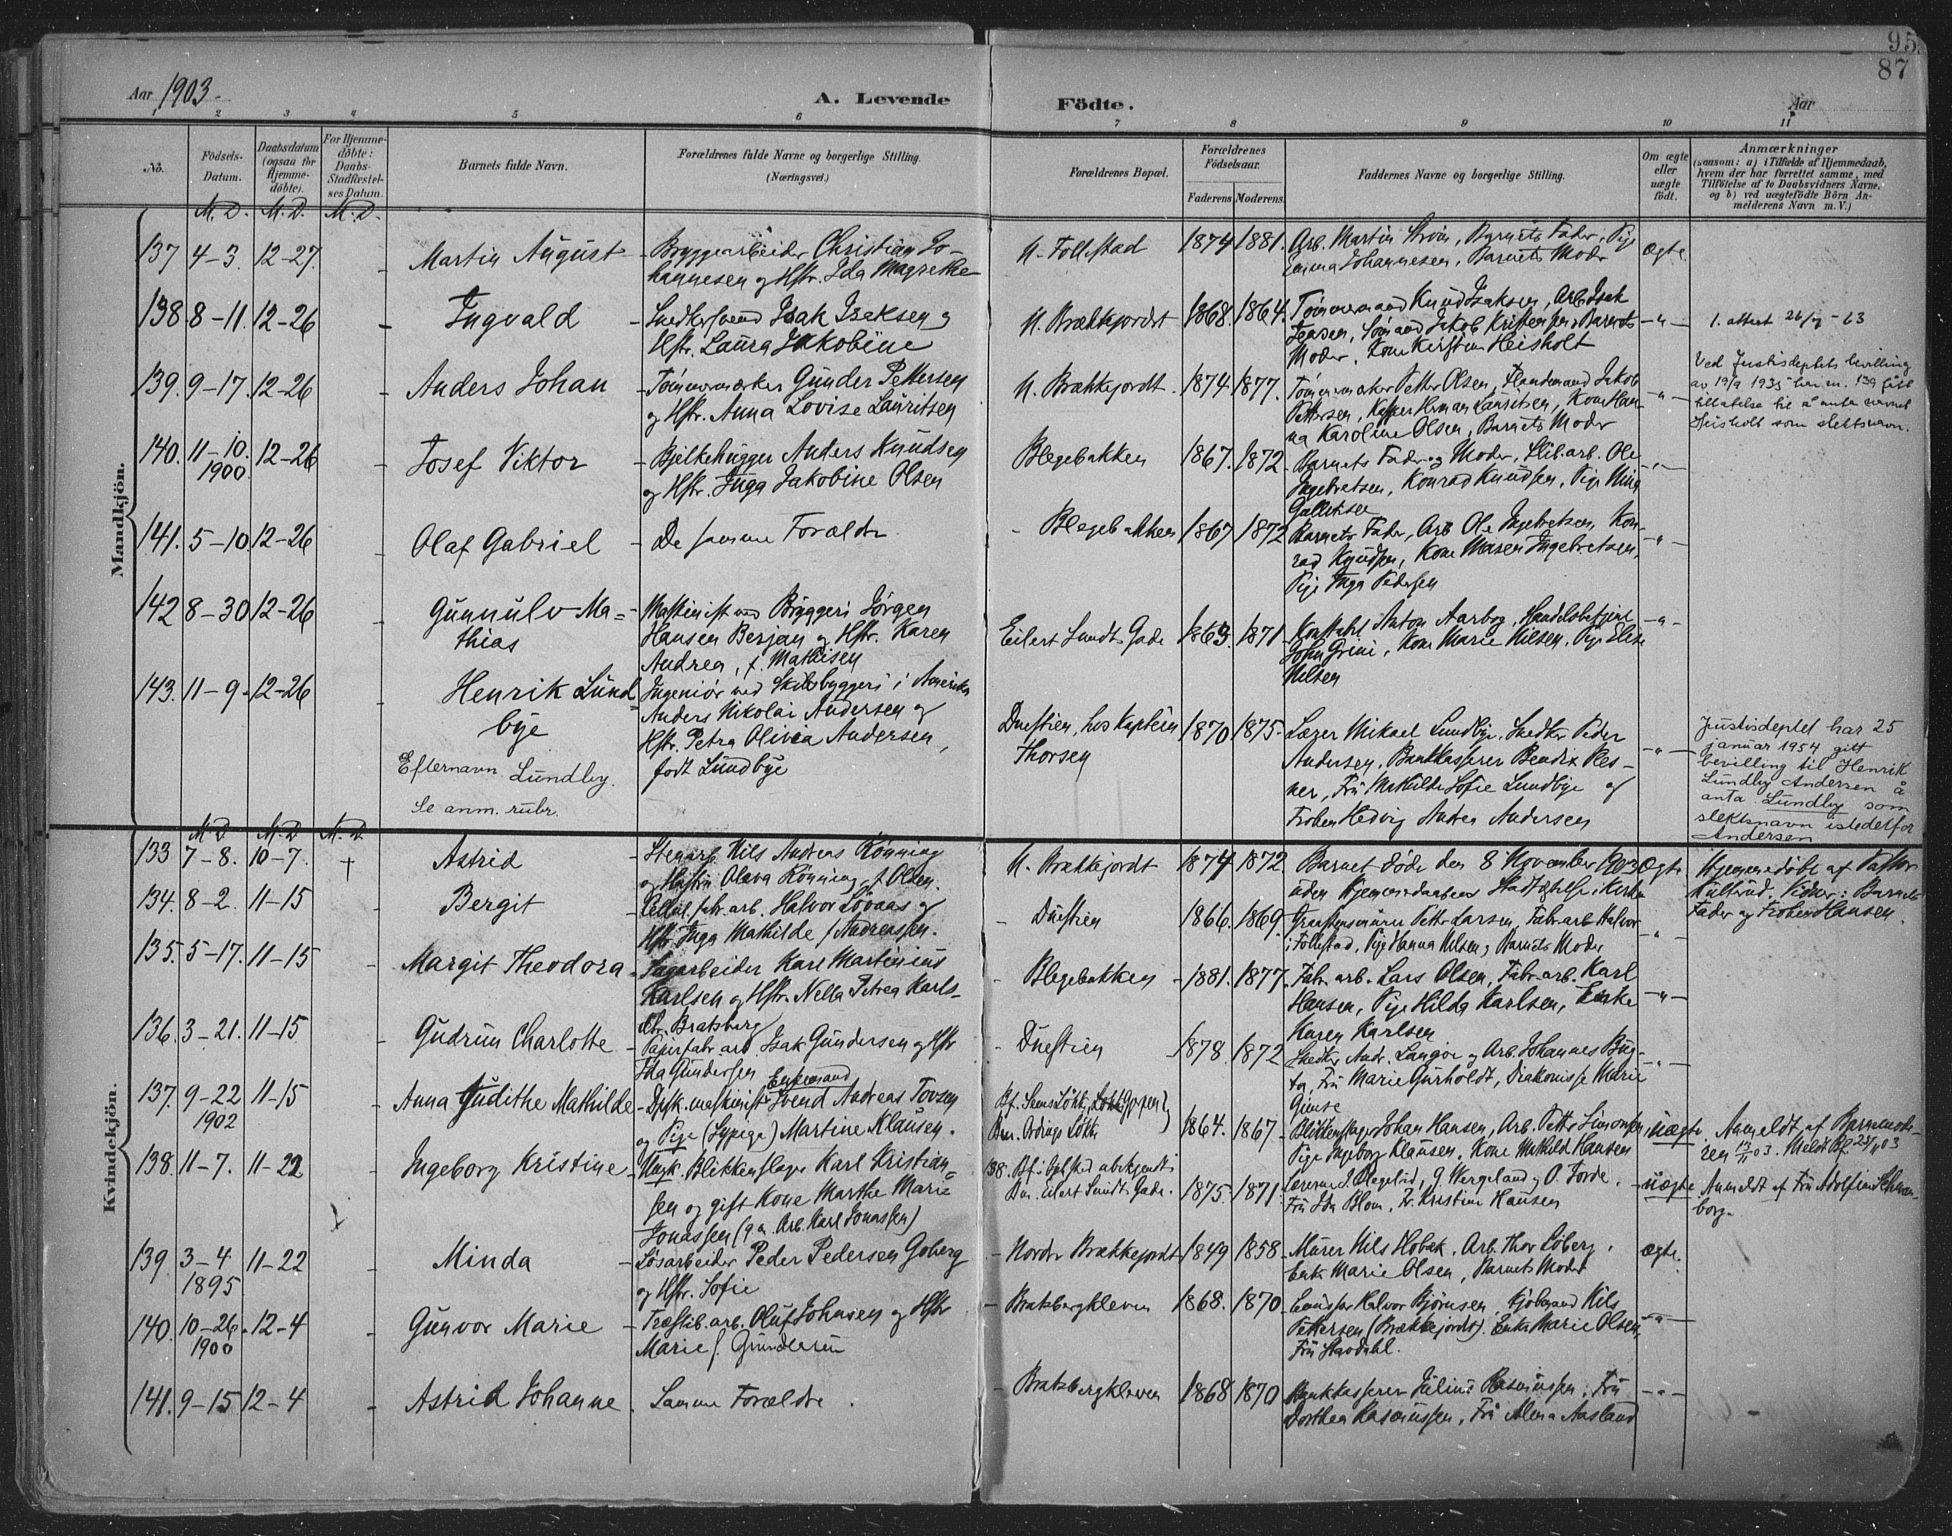 95
87
Aar 1903.
A. Levende Födte.
Aar
1 2 3 4 5 6 7 8 9 10 11
No.
Födsels-Datum.
Daabsdatum (ogsaa for Hjemmedöbte).
For Hjemmedöbte: Daabs-Stadfæstelses Datum.
Barnets fulde Navn.
Forældrenes fulde Navne og borgerlige Stilling. (Næringsvei.)
Forældrenes Bopæl.
Forældrenes Födselsaar.
Faderens Moderens
Faddernes Navne og borgerlige Stilling.
Om ægte eller uægte födt.
Anmærkninger
(saasom: a) i Tilfælde af Hjemmedaab, hvem der har forrettet samme, med Tilföielse af to Daabsvidners Navne, og b) ved uægtefödte Börn Anmelderens Navn m. V.)
Mandkjön.
M. D. M. D. M. D.
137 4-3. 12-27. Martin August
Bryggeriarbeider Christian Johannesen og Hstr. Ida Magrethe
N. Follestad 1874 1881. Arb. Martin Barnets Fader, Pige
Emma Johannesen, Barnets Moder ægte.
138 8-11. 12-26 Ingvald
Snedkersvend Isak Isaksen og
Hstr. Laura Jakobine
N. Brækkejordet 1868. 1864. Tømmermand Knud Isaksen, Arb. Isak
Jensen, Sømand Jakob Kristensen, Barnets
Moder, Kone Kirstine Heisholt
1. attest 26/9 - 63
139. 9-17. 12-26 Anders Johan
Tømmermærker Gunder Pettersen
og Hstr. Anna Lovise Lauritsen
N. Brækkejordt. 1874. 1877. Tømmermærker Petter Olsen, Jakob
Pettersen, Herman Lauritsen, Kone Hanna Karoline Olsen, Barnets Moder
Ved Justisdeptets bevilling
av 19/9 1935 har nr. 139 fått
tillatelse til å anta navnet
Heisholt som slektsnavn.
140. 11-10. 1900. 12-26 Josef Viktor
Bjelkehugger Anders Knudsen
og Hstr. Inga Jakobine Olsen
Blegebakken 1867. 1872. Barnets Fader og Moder, Slib.arb. Ole
Ingebretsen, Konrad Knudsen, Pige
141. 5-10. 12-26 Olaf Gabriel
De samme Forældre
Blegebakken 1867 1872 Barnets Fader, Arb. Ole Ingebretsen, Konrad Knudsen, Kone Maren Ingebretsen,
Pige Inga Pedersen
142 8-30 12-26 Gunnulv Mathias
Maskinist ved Bryggeri Jørgen
Hansen Berjan og Hstr. Karen
Andrea, f. Mathisen
Eilert Sundts Gade 1863. 1871. Anton Aarbog, Handelsbetjent
John Grini, Kone Marie Nilsen, Pige Elise
Nilsen
143. 11-9. 12-26 Henrik Lundbye
Efternavn Lundby.
Se anm. rubr.
Ingeniør ved Skibsbyggeri i Amerika
Anders Nikolai Andersen og
Hstr. Petra Olivia Andersen,
født Lundbye
Duestien, hos Kaptein
Thorsen
1870 1875. Lærer Mikael Lundbye, Snedker Peder
Andersen, Bankkasserer Bendix Plesner, Fru Mathilde Sofie Lundbye og
Frøken Hedvig Andrea Andersen
Justisdeptet har 25
januar 1954 gitt
bevilling til Henrik
Lundby Andersen å
anta Lundby som
slektsnavn istedetfor
Andersen
Kvindekjön.
M. D M. D M. D.
133 7-8. 10-7. † Astrid
Nils Andreas Rönning
og Hustru Oleva Rönning f. Olsen.
N. Brækkejordt 1874 1872. Barnet døde den 8 November 1903
uden Hjemmedaabens Stadfæstelse i Kirke
ægte.
Hjemmedøbt af Pastor
Kullerud, Vidner: Barnets
Fader og Frøken Hansen.
134. 8-2. 11-15 Bergit
Cellul.fabr.arb. Halvor Lövaas og
Hstr. Inga Mathilde f. Andreassen.
Duestien 1866. 1869. Petter Larsen, Fabr.arb. Halvor
Follestad, Pige Hanna Nilsen, Barnets Moder
135. 5-17. 11-15 Margit Theodora
Sagarbeider Karl Martinius
Karlsen og Hstr. Nella Petrea Karls-
dtr. Bratsberg
Blegebakken 1881. 1877. Fabr.arb. Lars Olsen, Fabr.arb. Karl
Hansen, Pige Hilda Karlsen, Enke
Karen Karlsen
136. 3-21. 11-15 Gudrun Charlotte
Papirfabr.arb. Isak Gundersen og Hstr
Ida Gundersen
Duestien 1878. 1872 Snedker Andr. Langøe, Arb. Johannes
Fru Marie Gurholdt, Diakonisse Marie
Gimse
137. 9-22 1902 11-15 Anna Judithe Mathilde
Enkemand
Disk.maskinist Svend Andreas Tovsen
og Pige (Sypige) Martine Klausen.
1864. 1867. Blikkenslager Johan Hansen, Arb. Petter Simonsen
Pige Ingeborg Klausen, Kone Mathilde Hansen
uægte. Anmeldt af Barnemoderen 13/11 03.
138. 11-7. 11-22 Ingeborg Kristine
Ungk. Blikkenslager Karl Kristiansen og gift Kone Marthe Marie
Jonassen (g.m. Arb. Karl Jonassen)
Bm. Eilert Sundts Gade. 1875. 1871. J. Wergeland og O. Forde.
Fru Ida Blom, Fr. Kristine Hansen
uægte Anmeldt af Fru Adolfine
139. 3-4 1895 11-22 Minda
Løsarbeider Peder Pedersen Goberg
og Hstr. Sofie
Nordre Brækkejordt 1849 1858. Murer Nils Hobæk, Arb. Thor Goberg,
Enke Marie Olsen, Barnets Moder ægte.
140. 10-26. 1900 12-4 Gunvor Marie
Træslib.arb. Oluf Johnsen og Hstr
Marie f. Gundersen
Bratsbergkleven 1868. 1870 Halvor Bjørnsen, Nils
Pettersen (Brækkejordt). Enke Marie Olsen,
Fru Stavdahl.
141. 9-15 12-4 Astrid Johanne.
Samme Forældre.
Bratsbergkleven 1868 1870 Bankkasserer Julius Rasmussen, Fru
Dorthea Rasmussen, Frk Alma Aasland